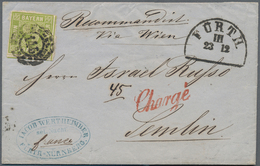 BAYERN
Recommandirt
via Wien
FÜRTH
III
23 12
Herrn Israel Russo
45
Chargé
Semlin
franco